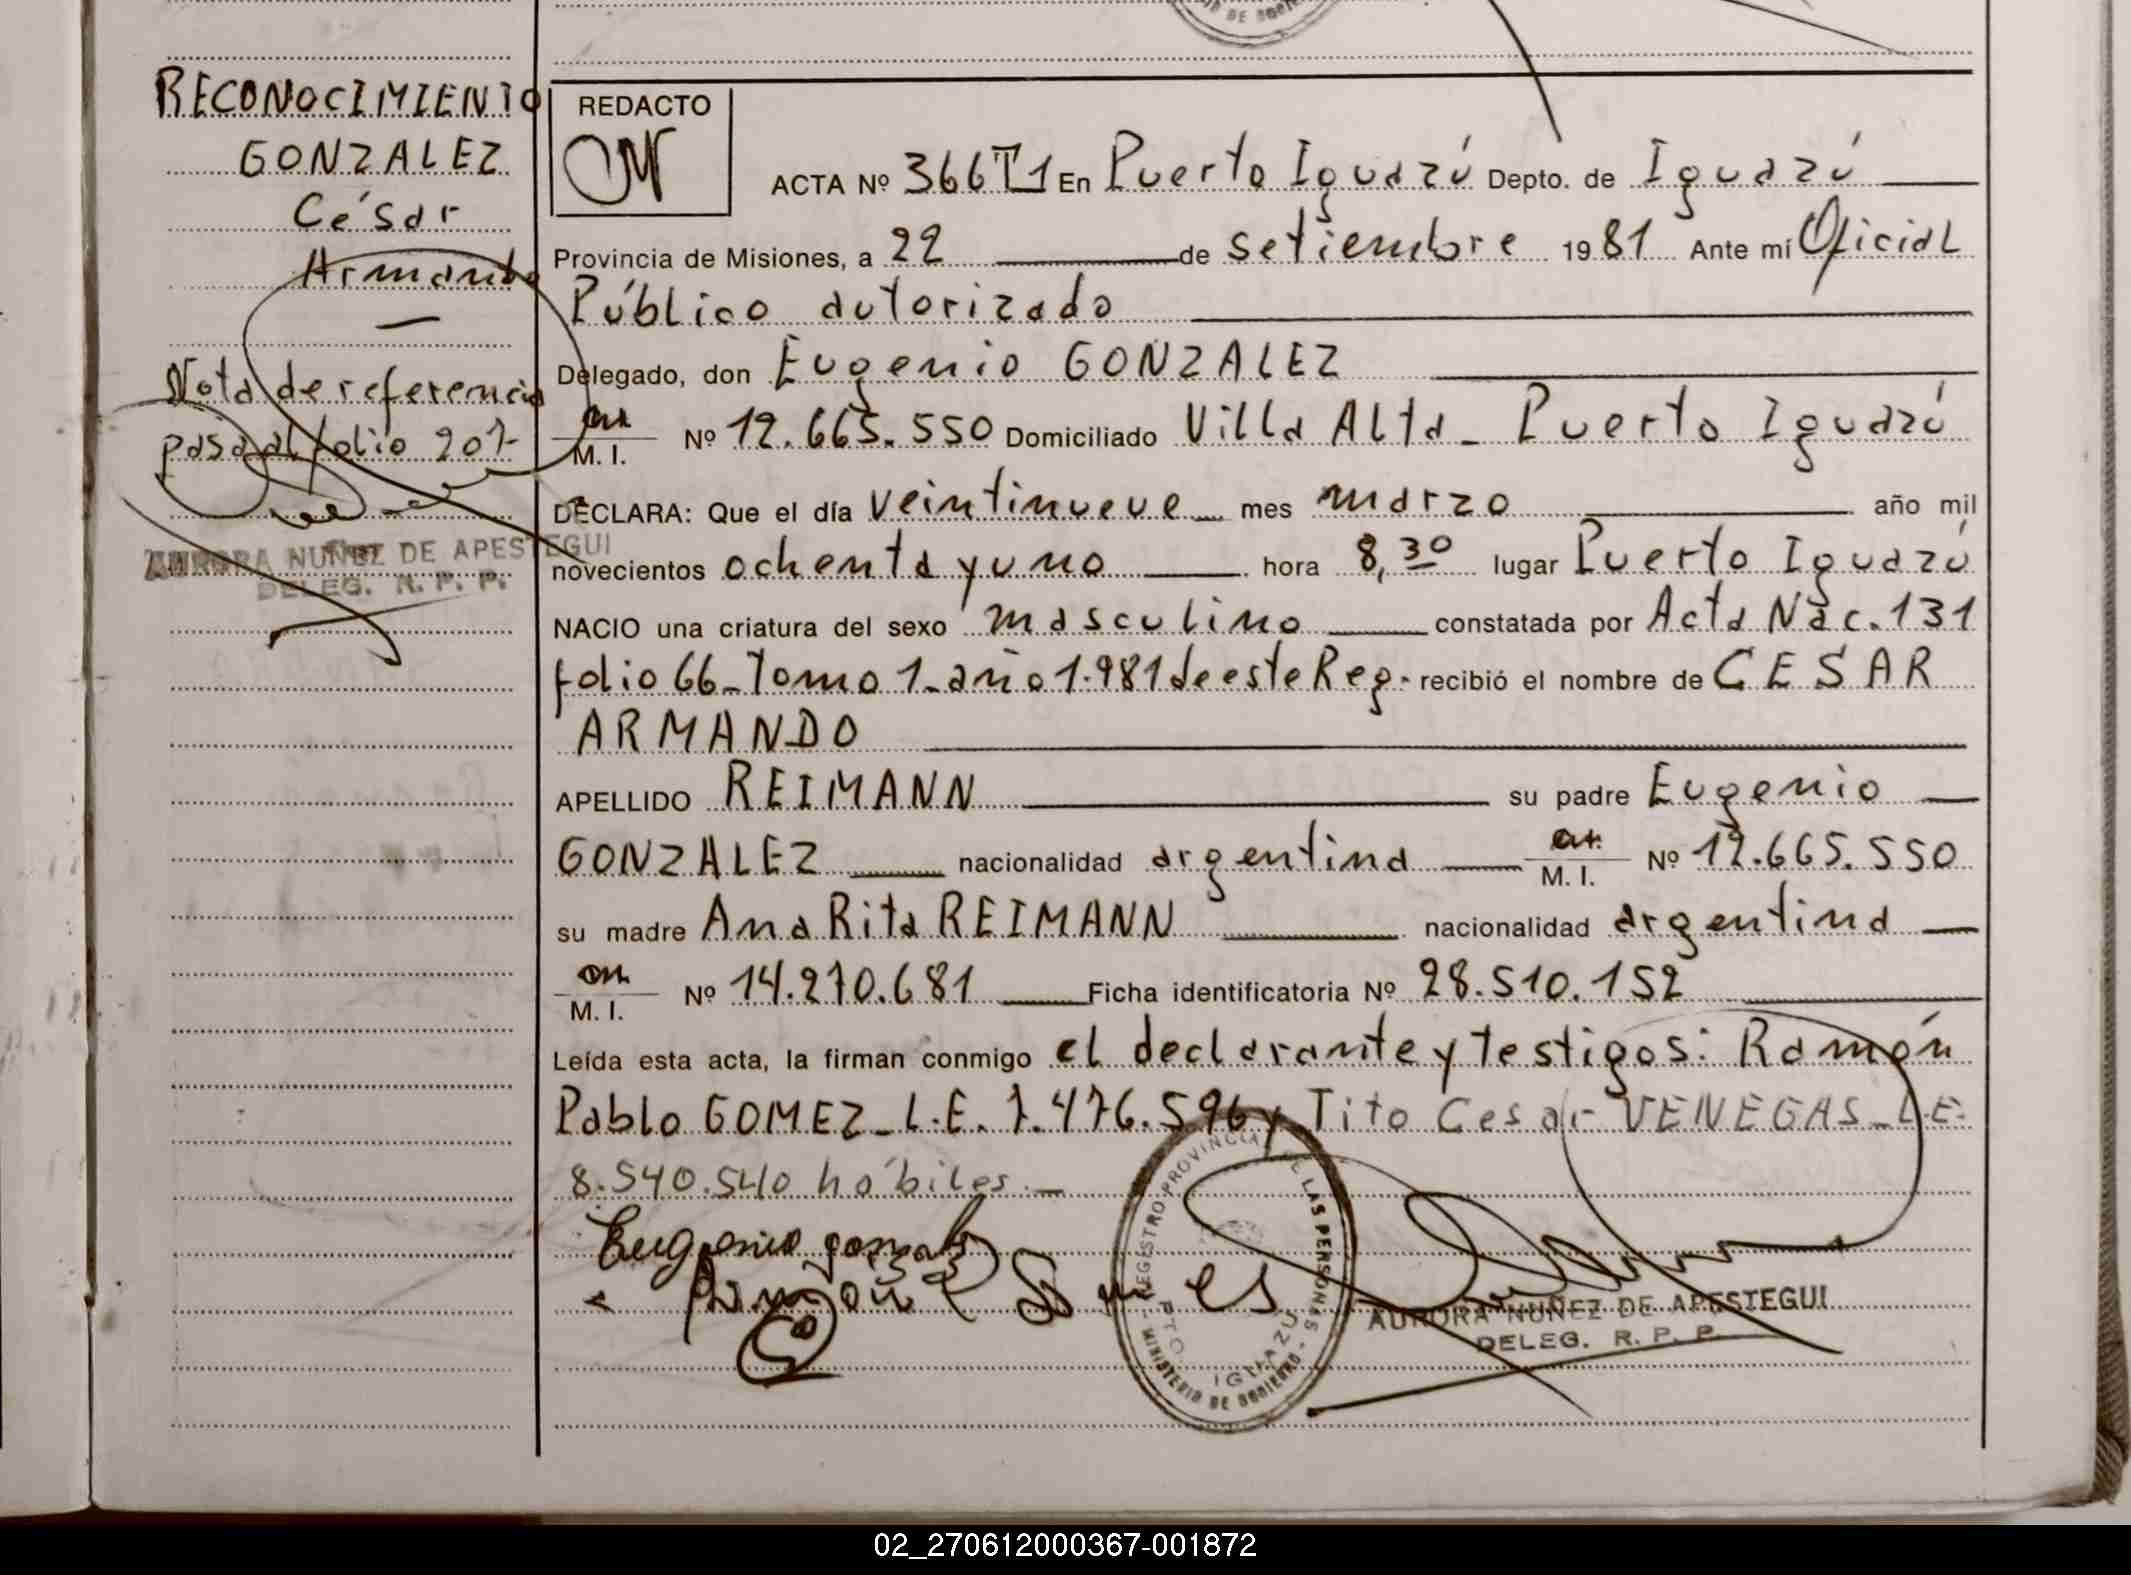 RECONOCIMIENTO
GONZALEZ
César
Armando
Nota de referencia
pasa al folio 207
AURORA NUÑEZ DE APESTEGUI
DELEG. R. P. P.
REDACTO
ACTA Nº 366T1 En Puerto Iguazú Depto. de Iguazú
Provincia de Misiones, a 22 de setiembre 1981 Ante mí Oficial
Público autorizado
Delegado, don Eugenio GONZALEZ
M. I. Nº 12.665.550 Domiciliado Villa Alta - Puerto Iguazú
DECLARA: Que el día veintinueve mes marzo año mil
novecientos ochenta y uno hora 8,30 lugar Puerto Iguazú
NACIO una criatura del sexo masculino constatada por Acta Nac. 131
folio 66 - Tomo 1 - año 1.981 de este Reg. recibió el nombre de CESAR
ARMANDO
APELLIDO REIMANN su padre Eugenio
GONZALEZ nacionalidad argentina M. I. Nº 12.665.550
su madre Ana Rita REIMANN nacionalidad argentina
M. I. Nº 14.270.681 Ficha identificatoria Nº 28.510.152
Leída esta acta, la firman conmigo el declarante y testigos: Ramón
Pablo GOMEZ - L.E. 7.476.596 y Tito Cesar VENEGAS - L.E.
8.540.540 hábiles. -
Eugenio gonzalez
REGISTRO PROVINCIAL DE LAS PERSONAS - MINISTERIO DE GOBIERNO -
PTO. IGUAZU
AURORA NUÑEZ DE APESTEGUI
DELEG. R. P. P.
02_270612000367-001872